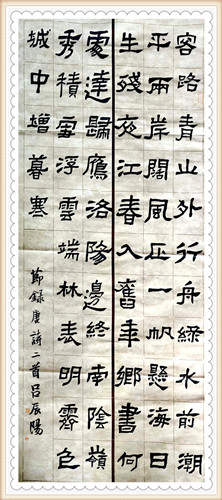 客路青山外行舟綠水前潮
平兩岸闊風正一帆懸海日
生殘夜江春入舊年鄉書何
處達歸鴈洛陽邊終南陰嶺
秀積雪浮雲端林表明霽色
城中增暮寒
節録唐詩二首呂辰陽